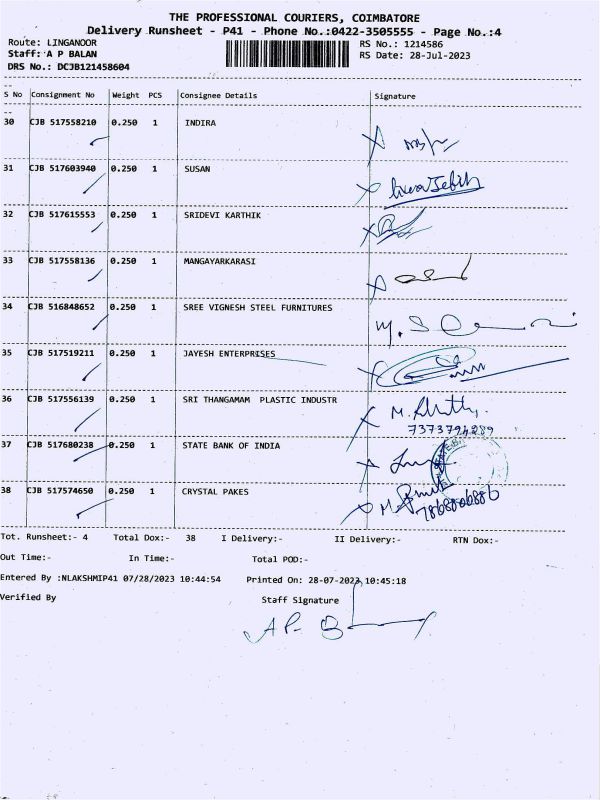 THE PROFESSIONAL COURIERS, COIMBATORE
Delivery Runsheet - P41 - Phone No.:0422-3505555 - Page No.:4
Route: LINGANOOR RS No.: 1214586
Staff: A P BALAN RS Date: 28-Jul-2023
DRS No.: DCJB121458604
S No Consignment No Weight PCS Consignee Details Signature
30 CJB 517558210 0.250 1 INDIRA
31 CJB 517603940 0.250 1 SUSAN
32 CJB 517615553 0.250 1 SRIDEVI KARTHIK
33 CJB 517558136 0.250 1 MANGAYARKARASI
34 CJB 516848652 0.250 1 SREE VIGNESH STEEL FURNITURES
35 CJB 517519211 0.250 1 JAYESH ENTERPRISES
36 CJB 517556139 0.250 1 SRI THANGAMAM PLASTIC INDUSTR
7373794289
37 CJB 517680238 0.250 1 STATE BANK OF INDIA
38 CJB 517574650 0.250 1 CRYSTAL PAKES
Tot. Runsheet:- 4 Total Dox:- 38 I Delivery:- II Delivery:- RTN Dox:-
Out Time:- In Time:- Total POD:-
Entered By :NLAKSHMIP41 07/28/2023 10:44:54 Printed On: 28-07-2023 10:45:18
Verified By Staff Signature
A P. B